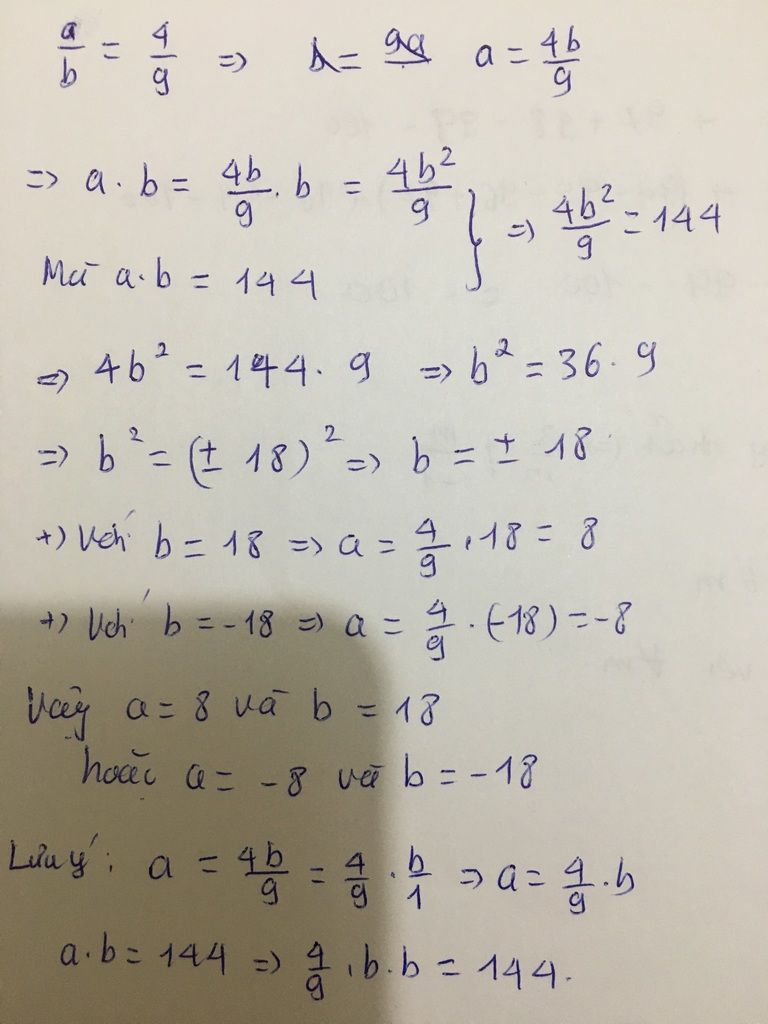 a/b = 4/9 => a = 4b/9
=> a · b = 4b/9 · b = 4b²/9
Mà a·b = 144 } => 4b²/9 = 144
=> 4b² = 144 · 9 => b² = 36 · 9
=> b² = (± 18)² => b = ± 18
+) Với b = 18 => a = 4/9 . 18 = 8
+) Với b = -18 => a = 4/9 · (-18) = -8
Vậy a = 8 và b = 18
hoặc a = -8 và b = -18
Lưu ý: a = 4b/9 = 4/9 · b/1 => a = 4/9 · b
a·b = 144 => 4/9 . b · b = 144.